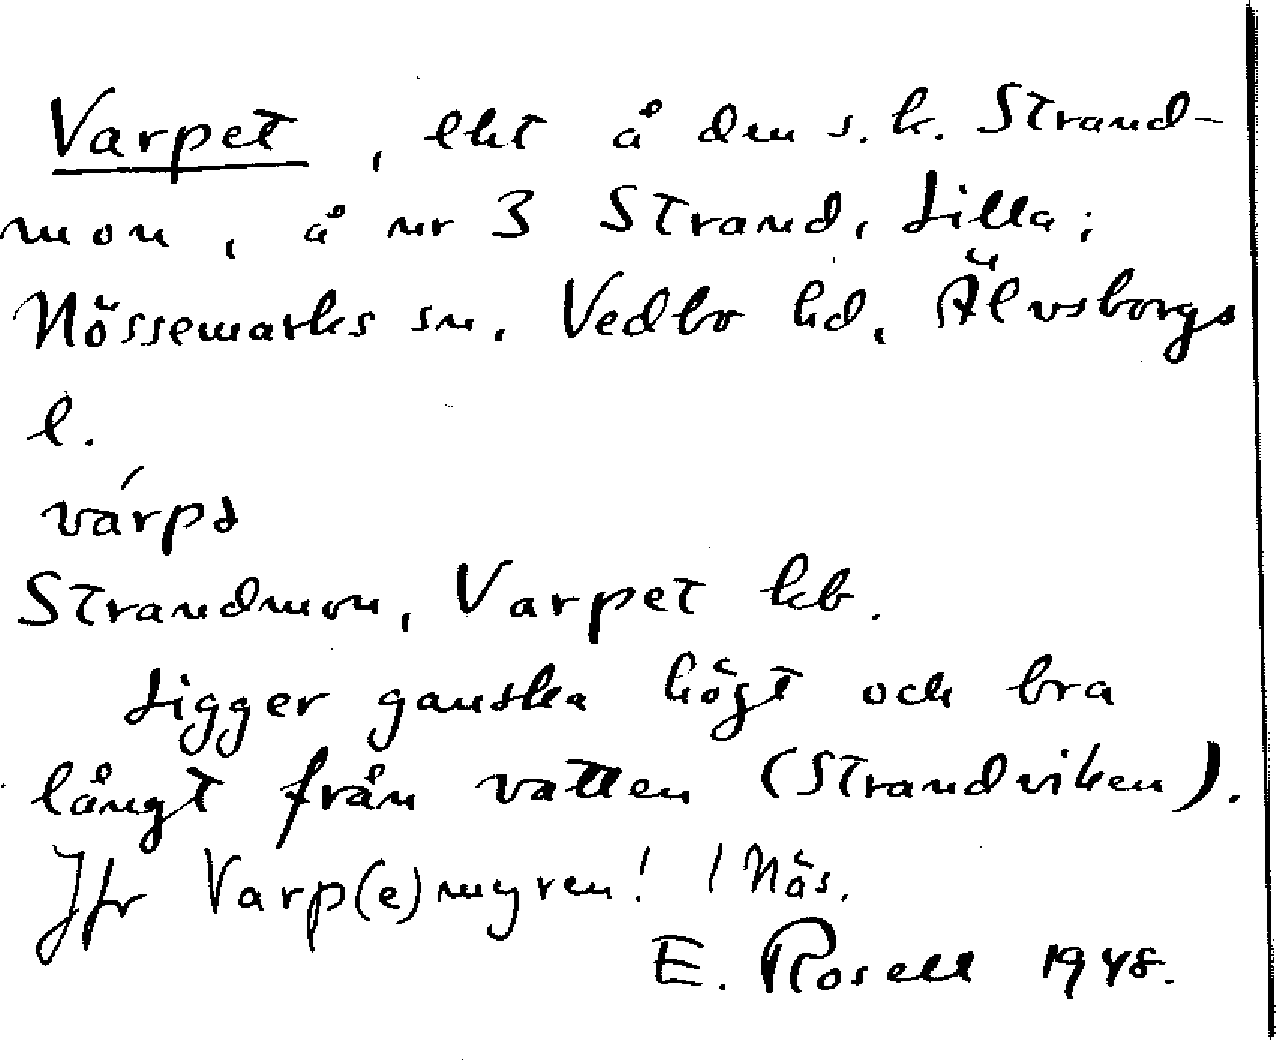 Varpet, lht å den s. k. Strand-
mon, å nr 3 Strand, Lilla;
Nössemarks sn. Vedbo hd, Älvsborgs
l.
várpə
Strandmon, Varpet kb.
Ligger ganska högt och bra
långt från vatten (Strandviken).
Jfr Varp(e)myren! / Näs.
E. Rosell 1948.